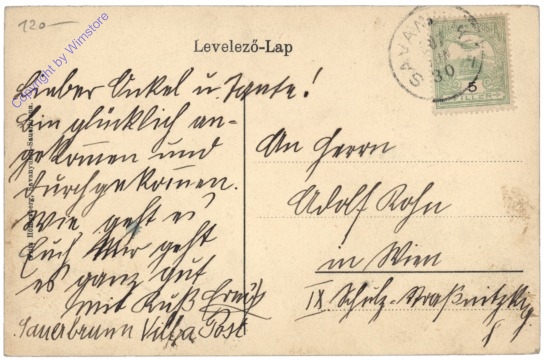 120-
Copyright by Wimstore
Levelező-Lap
SAVAN
30
5
FILLÉR
Lieber Onkel u. Tante!
Bin glücklich an-
gekommen und
durchgekommen,
Wie geht es
Euch Mir geht
es ganz gut
Mit Kuß Ernst
Sauerbrunn Villa Post
An Herrn
Adolf Kohn
in Wien
IX Schulz-Straßnitzkg.